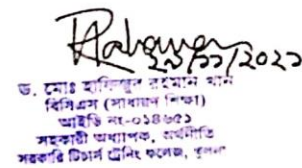 ২৯/১১/২০২১
ড. মোঃ হাফিজুর রহমান খান
বিসিএস (সাধারণ শিক্ষা)
আইডি নং-০১৪৬৫১
সহকারী অধ্যাপক, অর্থনীতি
সরকারি টিচার্স ট্রেনিং কলেজ, খুলনা